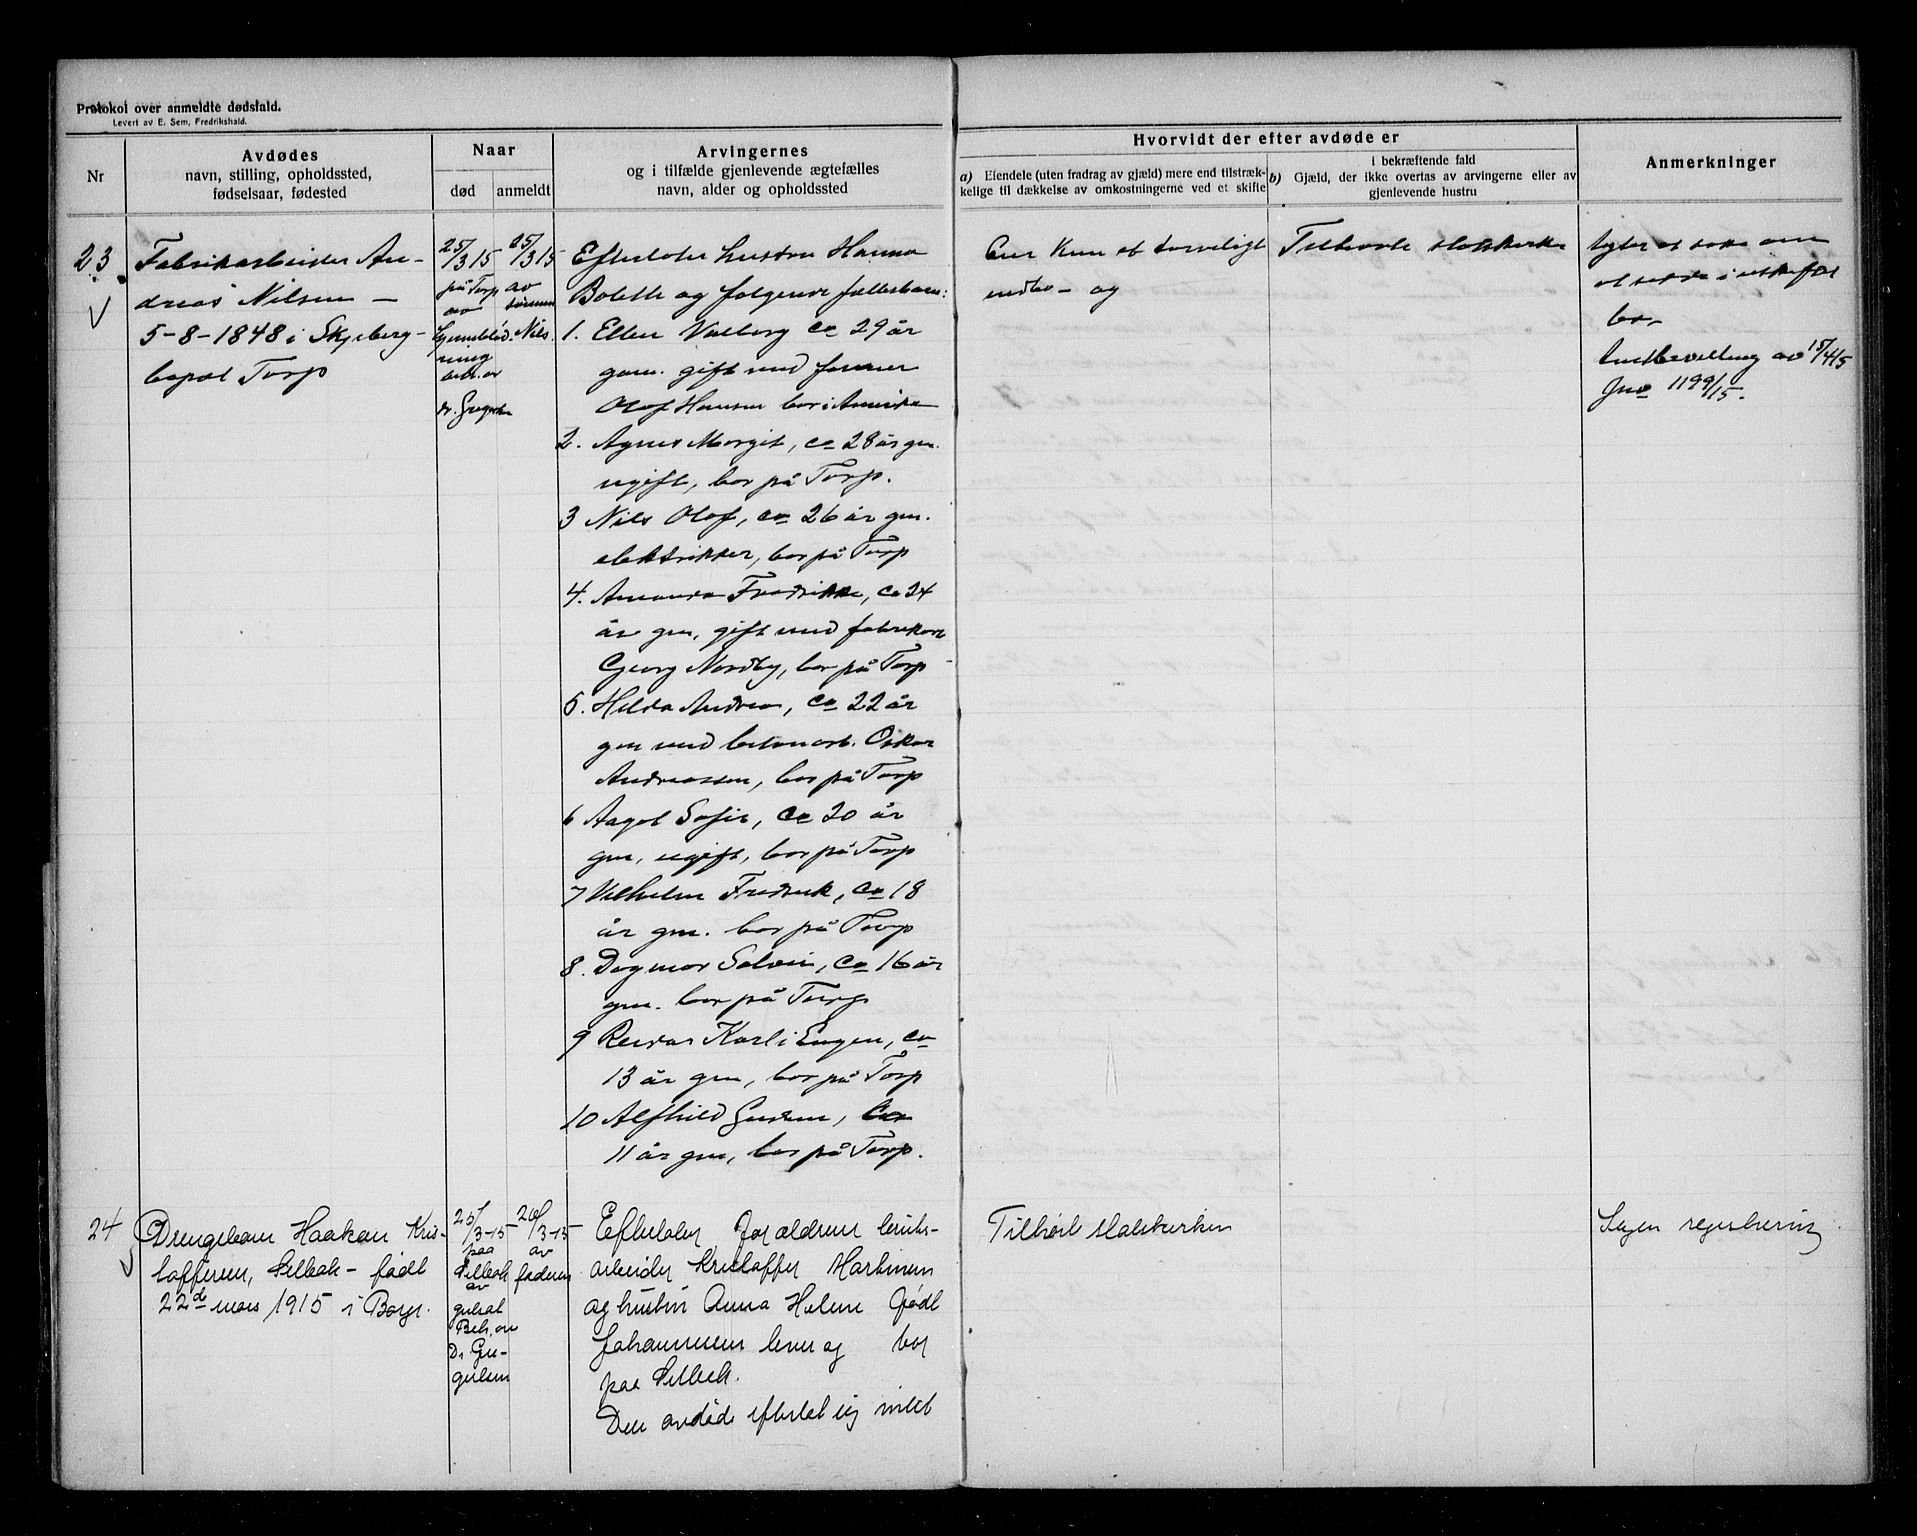 Protokol over anmeldte dødsfald.
Levert av E. Sem, Fredrikshald.
Nr
Avdødes
navn, stilling, opholdssted,
fødselsaar, fødested
Naar
død
anmeldt
Arvingernes
og i tilfælde gjenlevende ægtefælles
navn, alder og opholdssted
Hvorvidt der efter avdøde er
a) Eiendele (uten fradrag av gjæld) mere end tilstræk-
kelige til dækkelse av omkostningerne ved et skifte
i bekræftende fald
b) Gjæld, der ikke overtas av arvingerne eller av
gjenlevende hustru
Anmerkninger
23
Fabrikarbeider An-
dreas Nilsen –
5-8-1848 i Skjeberg –
bopæl Torp
25/3 15
på Torp
av
arb. av
dr.
25/3 15
av
sønnen
Nils.
Efterlater hustru Hanna
Bolette og følgende fællesbarn:
1. Ellen Valborg ca 29 år
gam. gift med farmer
Olof Hansen bor i Amerika
2. Agnes Margit, ca 28 år gm.
ugift, bor på Torp.
3 Nils Olof, ca 26 år gm.
elektrikker, bor på Torp
4. Amanda Fredrikke, ca 24
år gm, gift med fabrikarb
Georg Nordby, bor på Torp
5. Hilda Andrea, ca 22 år
gm med betonarb. Oskar
Andreassen, bor på Torp
6 Aagot Sofie, ca 20 år
gm, ugift, bor på Torp
7 Vilhelm Fredrik, ca 18
år gm. bor på Torp
8. Dagmar Solvei, ca 16 år
gm. bor på Torp
9 Reidar Karl i Eugen, ca
13 år gm, bor på Torp
10 Alfhild Gudrun, ca
11 år gm, bor på Torp.
Eier kun et tarveligt
indbo – og
Tilhørte statskirke
agter at søke om
at sidde i uskiftet
bo.
Andbevilling av 15/4 15
Jno 1199/15.
24
Drengebarn Haakon Kris-
toffersen, Selbak – født
22de mars 1915 i Borge.
25/3-15
paa
Selbak
av
gulsot
Beh. av
Dr Gre-
gersen
26/3-15
av
faderen
Efterlater forældrene bruks-
arbeider Kristoffer Martinsen
og hustru Anna Helene født
Johannesen lever og bor
paa Selbak.
Den avdøde efterlot sig intet
Tilhørt statskirken
Ingen registrering